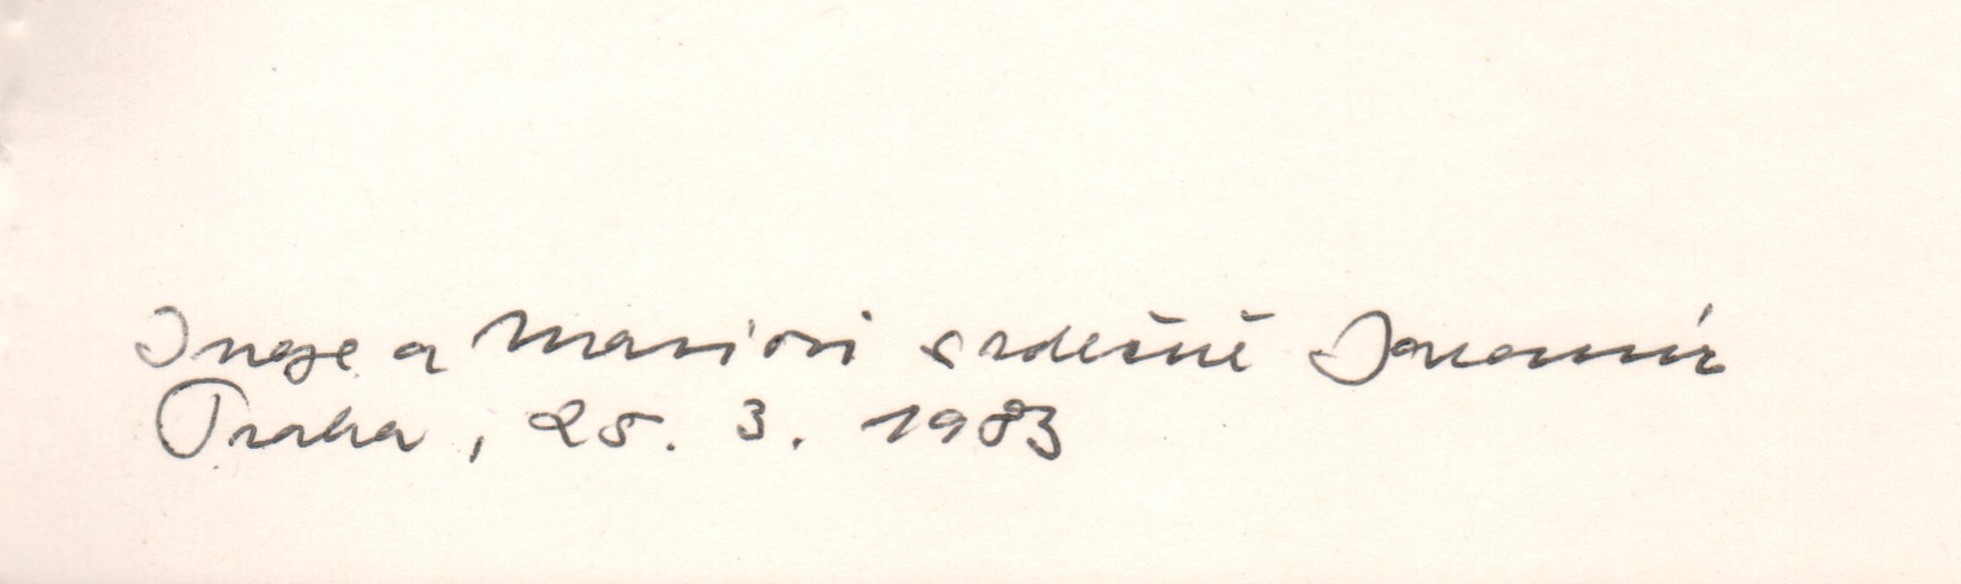 Inge a Mariovi srdečně Jaromír
Praha, 25. 3. 1983